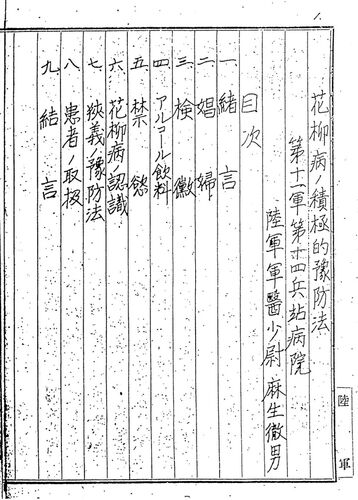 花柳病ノ積極的豫防法
第十一軍第十四兵站病院
陸軍軍醫少尉 麻生徹男
目次
一、緒言
二、娼婦
三、檢黴
四、アルコール飲料
五、禁慾
六、花柳病ノ認識
七、狹義ノ豫防法
八、患者ノ取扱
九、結言
陸軍